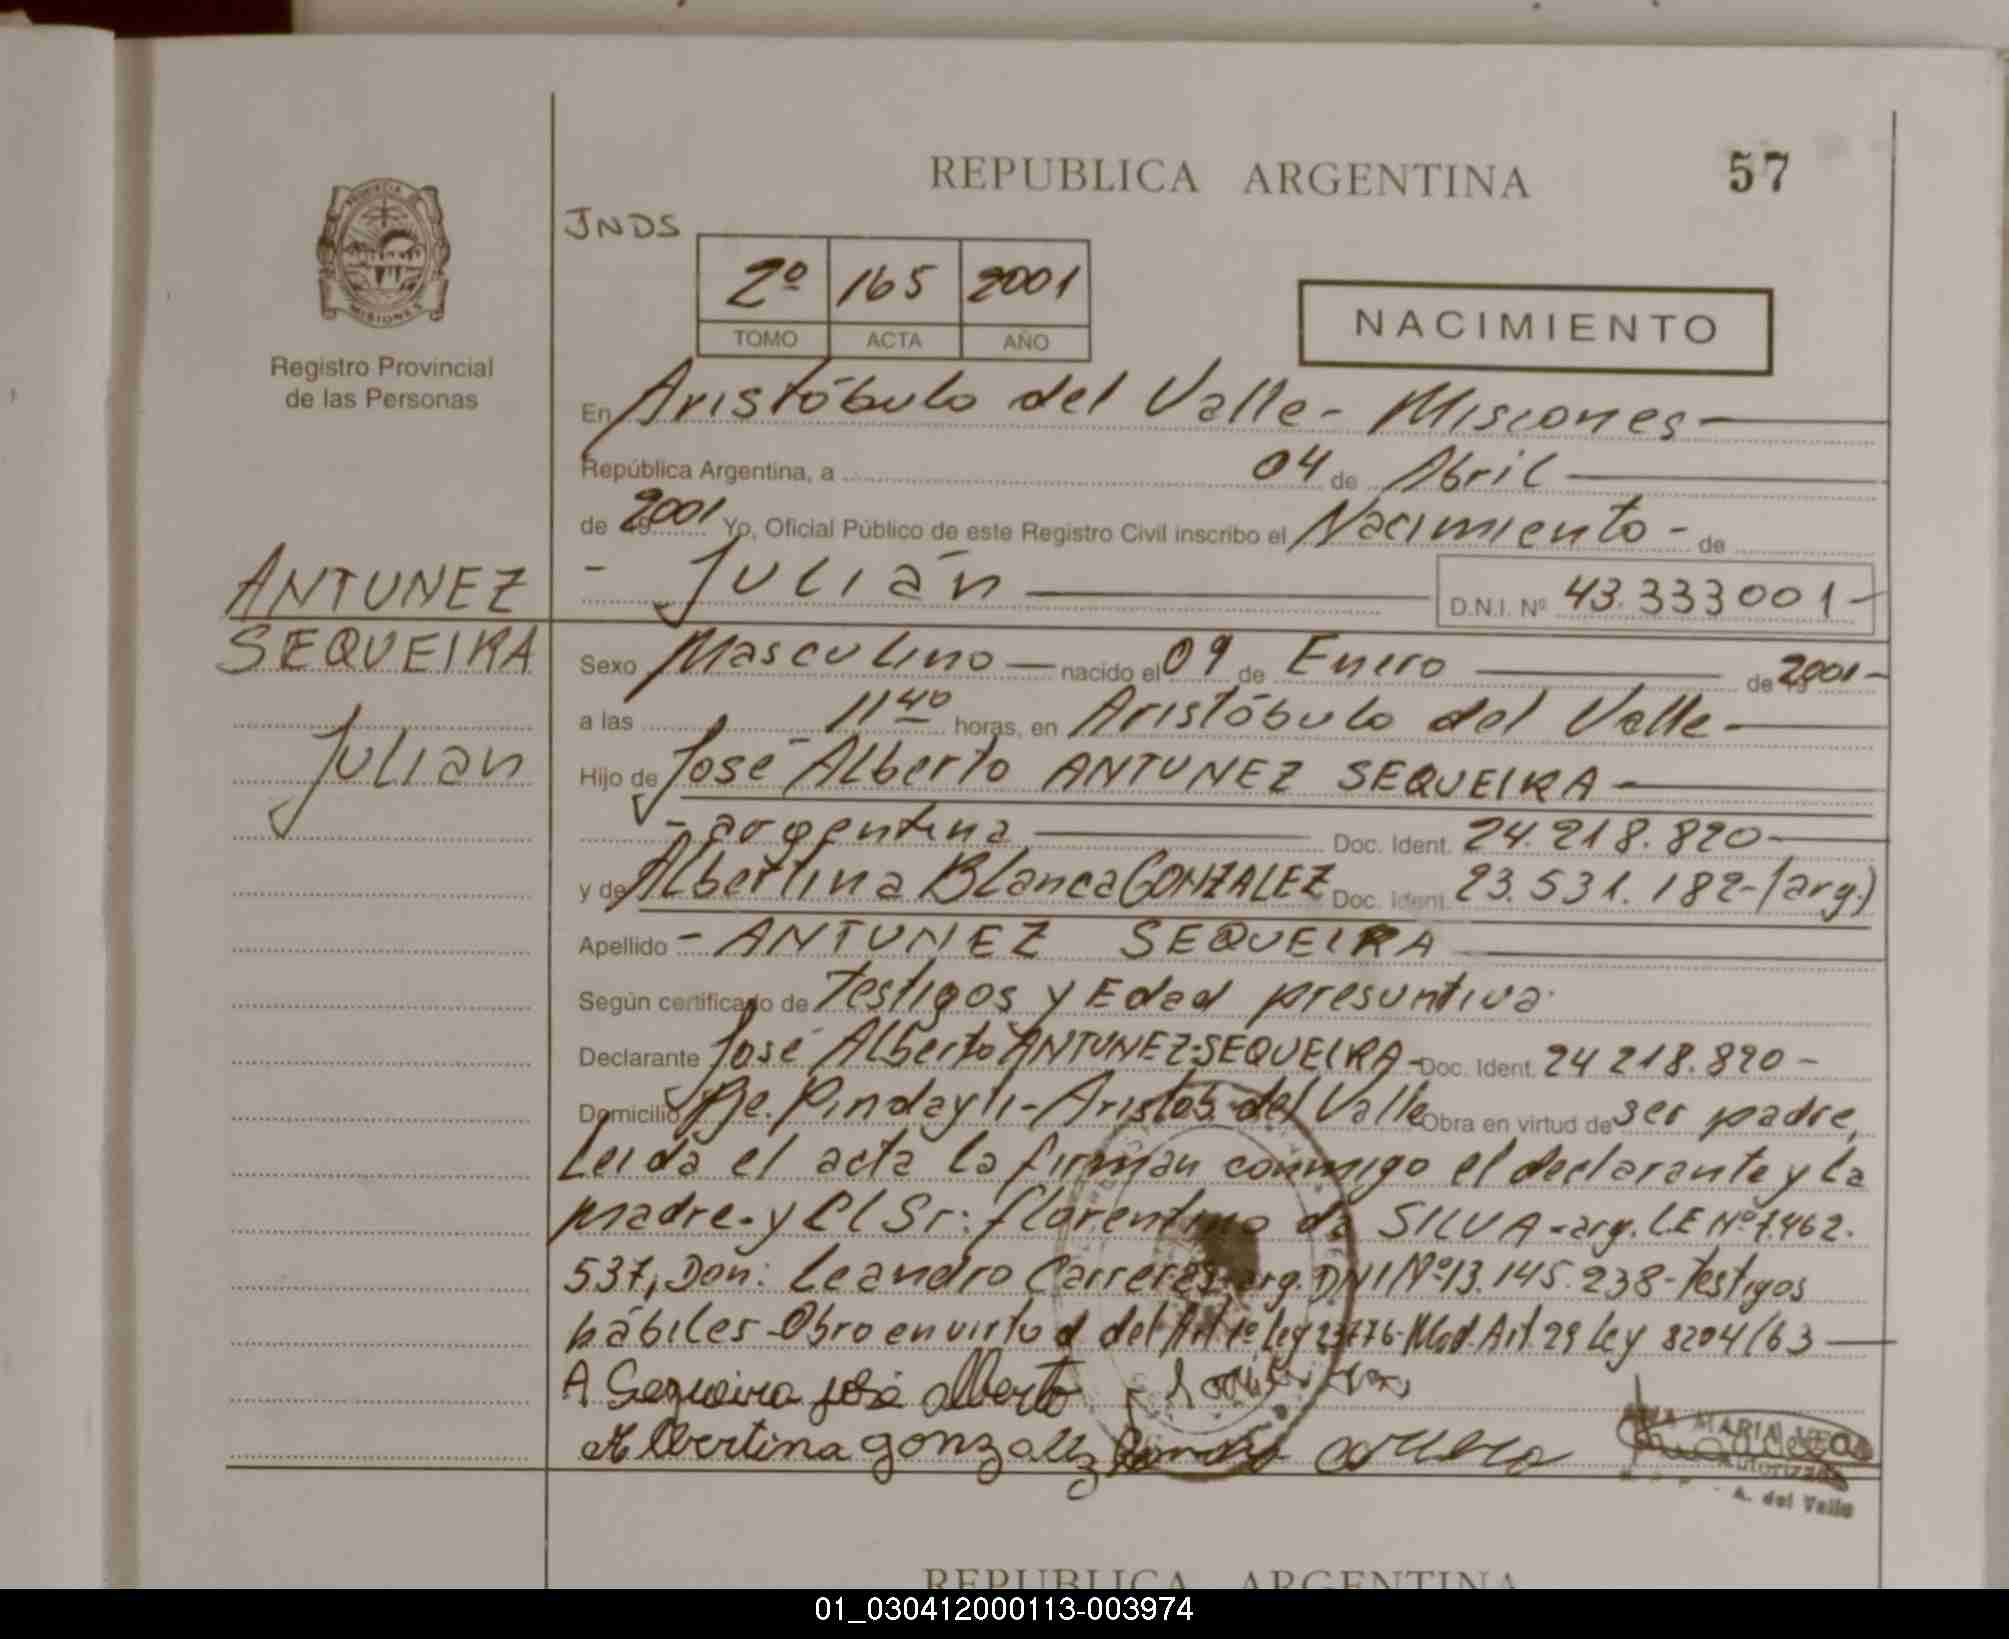 REPUBLICA ARGENTINA
57
JNDS
2º 165 2001
TOMO ACTA AÑO
NACIMIENTO
PROVINCIA DE
MISIONES
Registro Provincial
de las Personas
En Aristóbulo del Valle - Misiones
República Argentina, a 04 de Abril
de 2001 Yo, Oficial Público de este Registro Civil inscribo el Nacimiento - de
- Julián D.N.I. Nº 43.333001-
ANTUNEZ
SEQUEIRA
Julian
Sexo Masculino nacido el 09 de Enero de 2001-
a las 11 40 horas, en Aristóbulo del Valle-
Hijo de José Alberto ANTUNEZ SEQUEIRA
- argentina Doc. Ident. 24.218.820-
y de Albertina Blanca GONZALEZ Doc. Ident. 23.531.182-(arg.)
Apellido - ANTUNEZ SEQUEIRA
Según certificado de Testigos y Edad presuntiva.
Declarante José Alberto ANTUNEZ-SEQUEIRA- Doc. Ident. 24 218.820-
Domicilio Pindayti-Aristob. del Valle Obra en virtud de ser padre,
Leida el acta la firman conmigo el declarante y la
madre.-y el Sr: florentino da SILVA-arg. LE Nº 7.462.
537, Don: Leandro Carreres-arg. DNI Nº13.145.238-Testigos
hábiles-Obro en virtud del Art. 1º Ley 23776-Mod. Art. 29 Ley 8204/63
A Seqveira josé alberto
Albertina gonzalez
MARIA
Autorizada
A. del Valle
REPUBLICA ARGENTINA
01_030412000113-003974